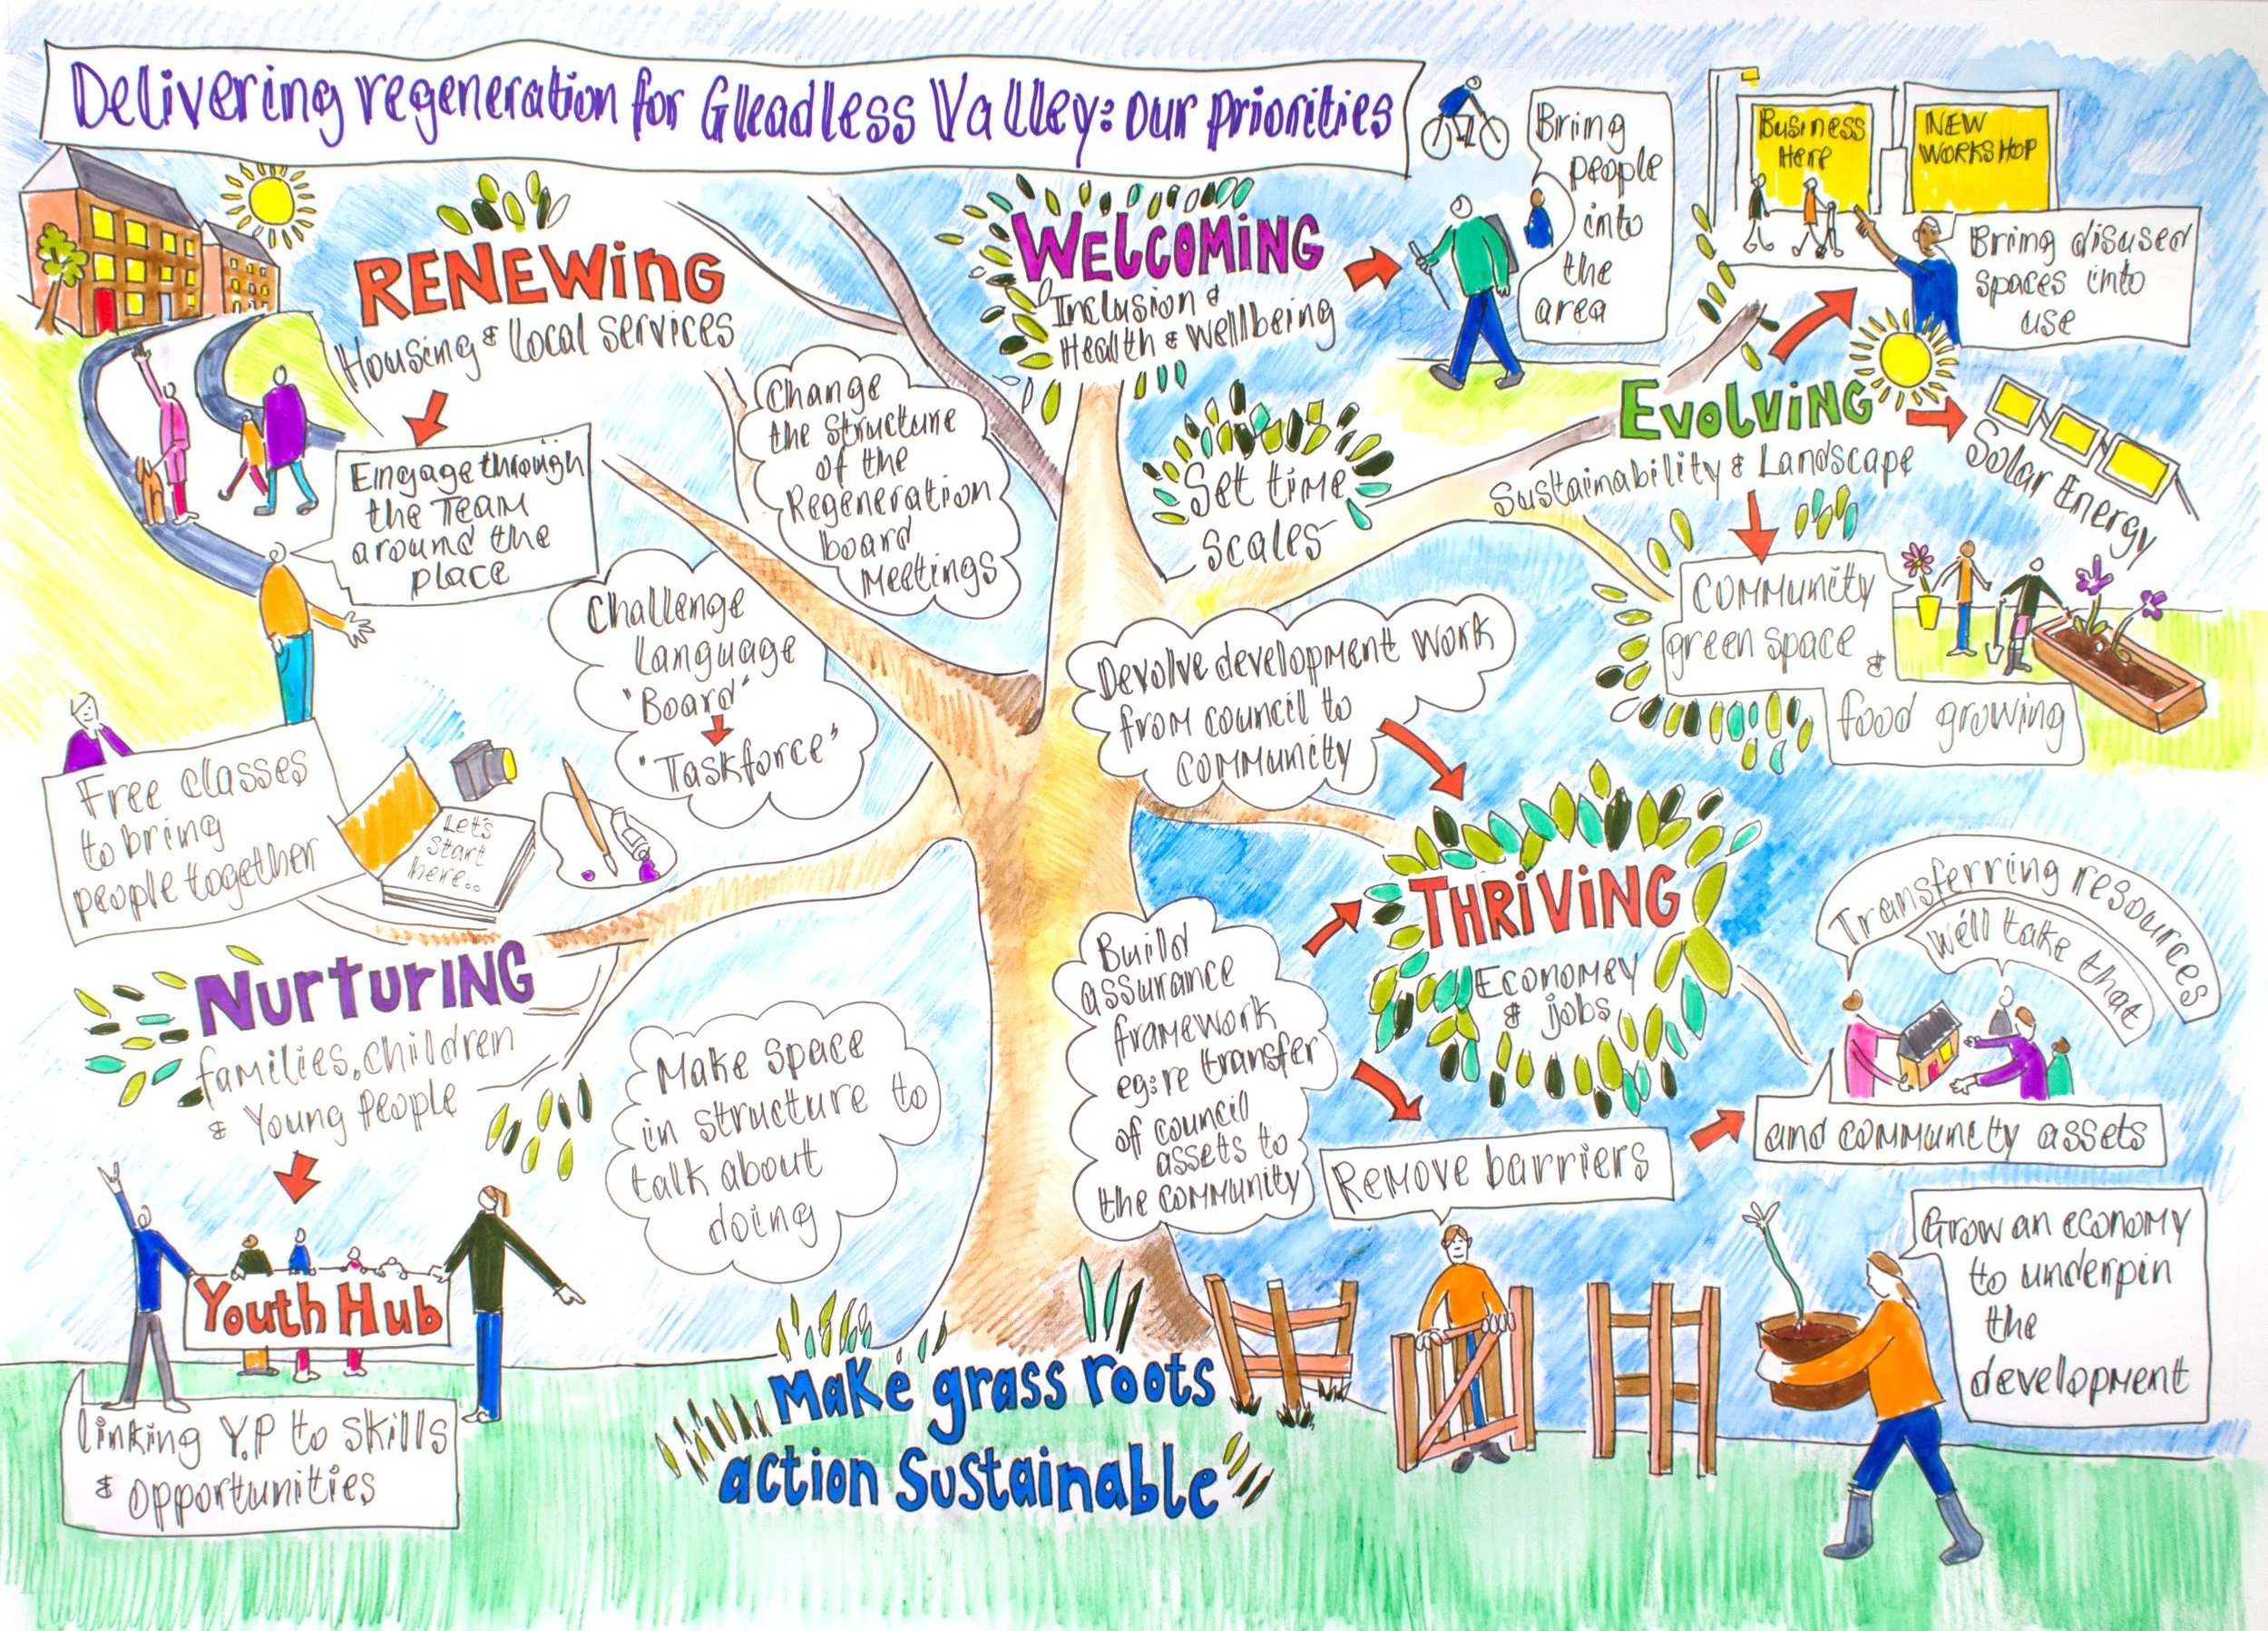 Delivering regeneration for Gleadless Valley: our priorities
RENEWING
Housing & local services
Engage through
the Team
around the
place
Change
the structure
of the
Regeneration
board
Meetings
Challenge
Language
"Board"
"Taskforce"
WELCOMING
Inclusion &
Health & Wellbeing
Bring
people
into
the
area
Set time
scales
Business
Here
NEW
WORKSHOP
Bring disused
spaces into
use
EVOLVING
Sustainability & Landscape
Solar Energy
Community
green space
&
food growing
Devolve development work
from council to
community
Free classes
to bring
people together
Let's
start
here..
NURTURING
families, children
& Young People
Youth Hub
linking Y.P to skills
& opportunities
Make space
in structure to
talk about
doing
Build
assurance
framework
eg: re transfer
of council
assets to
the community
THRIVING
Economy
& jobs
Transferring resources
We'll take that
and community assets
Remove barriers
Grow an economy
to underpin
the
development
Make grass roots
action Sustainable